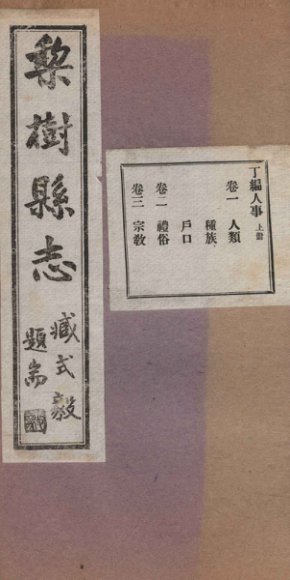 丁編人事 上冊
卷一 人類
種族
戶口
卷二 禮俗
卷三 宗教
梨樹縣志
臧式毅
題耑